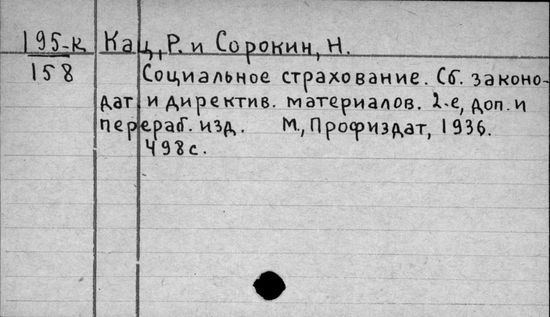 195-К Кац, Р. и Сорокин, Н.
158 Социальное страхование. Сб. законо-
дат. и директив. материалов. 2-е, доп. и
перераб. изд. М., Профиздат, 1936.
498 с.